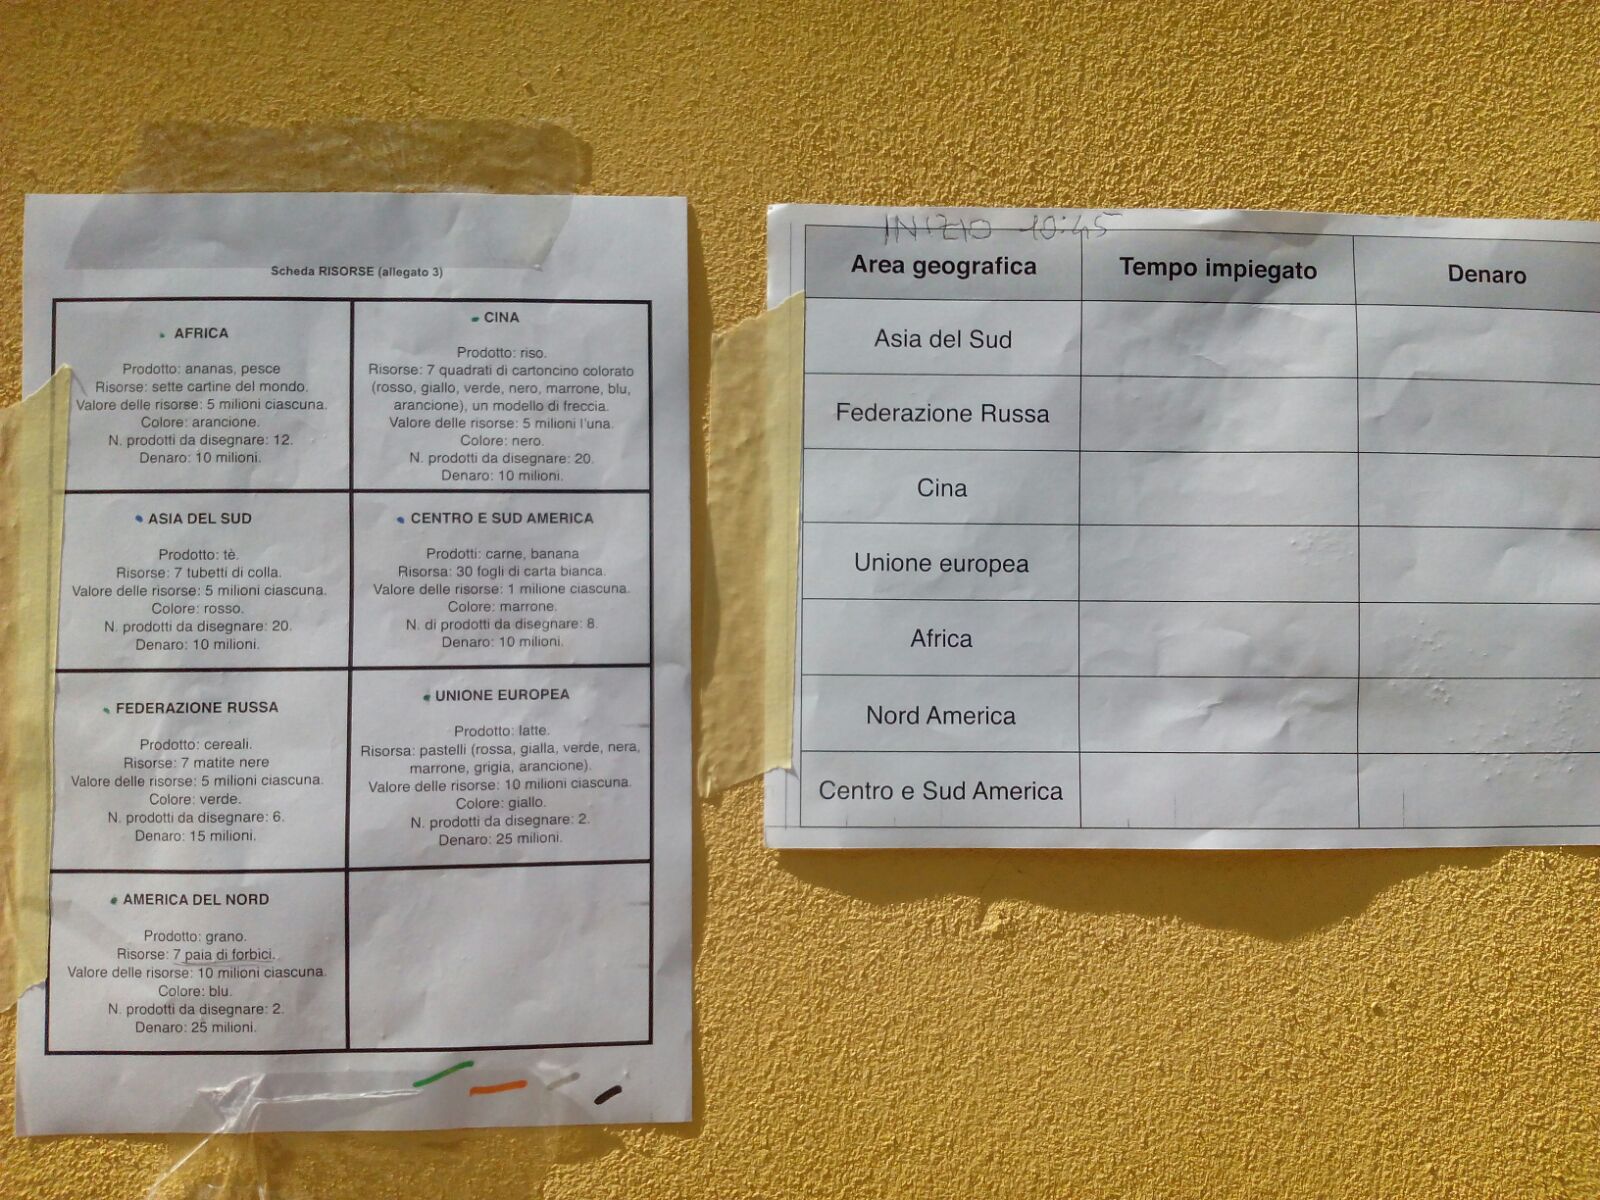 Scheda RISORSE (allegato 3)
AFRICA
Prodotto: ananas, pesce
Risorse: sette cartine del mondo.
Valore delle risorse: 5 milioni ciascuna.
Colore: arancione.
N. prodotti da disegnare: 12.
Denaro: 10 milioni.
CINA
Prodotto: riso.
Risorse: 7 quadrati di cartoncino colorato
(rosso, giallo, verde, nero, marrone, blu,
arancione), un modello di freccia.
Valore delle risorse: 5 milioni l'una.
Colore: nero.
N. prodotti da disegnare: 20.
Denaro: 10 milioni.
ASIA DEL SUD
Prodotto: tè.
Risorse: 7 tubetti di colla.
Valore delle risorse: 5 milioni ciascuna.
Colore: rosso.
N. prodotti da disegnare: 20.
Denaro: 10 milioni.
CENTRO E SUD AMERICA
Prodotti: carne, banana
Risorsa: 30 fogli di carta bianca.
Valore delle risorse: 1 milione ciascuna.
Colore: marrone.
N. di prodotti da disegnare: 8.
Denaro: 10 milioni.
FEDERAZIONE RUSSA
Prodotto: cereali.
Risorse: 7 matite nere
Valore delle risorse: 5 milioni ciascuna.
Colore: verde.
N. prodotti da disegnare: 6.
Denaro: 15 milioni.
UNIONE EUROPEA
Prodotto: latte.
Risorsa: pastelli (rossa, gialla, verde, nera,
marrone, grigia, arancione).
Valore delle risorse: 10 milioni ciascuna.
Colore: giallo.
N. prodotti da disegnare: 2.
Denaro: 25 milioni.
AMERICA DEL NORD
Prodotto: grano.
Risorse: 7 paia di forbici.
Valore delle risorse: 10 milioni ciascuna.
Colore: blu.
N. prodotti da disegnare: 2.
Denaro: 25 milioni.
INIZIO 10:45
Area geografica Tempo impiegato Denaro
Asia del Sud
Federazione Russa
Cina
Unione europea
Africa
Nord America
Centro e Sud America